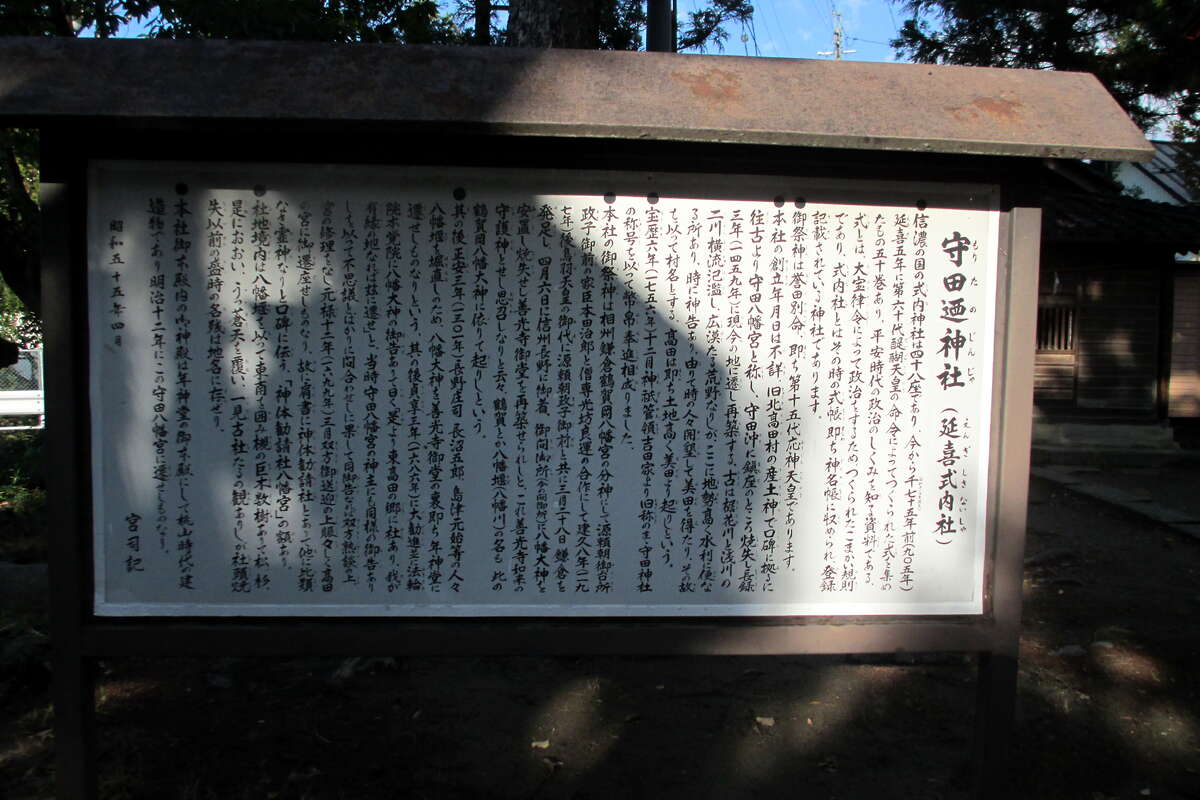 守田廼神社（延喜式内社）
もりたのじんじゃ　えんぎしきないしゃ
●信濃の国の式内神社は四十八座であり、今から千七十五年前（九〇五年）
延喜五年に第六十代醍醐天皇の命令によってつくられた式を集め
たもの五十巻あり、平安時代の政治のしくみを知る資料である。
式とは、大宝律令によって政治をするためつくられたこまかい規則
であり、式内社とはその時の式帳、即ち神名帳に収められ、登録
記載されている神社であります。
●御祭神は誉田別命、即ち第十五代応神天皇であります。
●本社の創立年月日は不詳、旧北高田村の産土神で口碑に拠るに
往古より守田八幡宮と称し、守田沖に鎮座のところ焼失し長録
三年（一四五九年）に現今の地に遷し再築す。古は裾花川と浅川の
二川横流氾濫し広漠たる荒野なりしが、ここに地勢高く水利に便な
る所あり、時に神告あり由て時の人々開墾して美田を得たり、その故
を以って村名とする。高田は即ち土地高く美田より起りという。
●宝歴六年（一七五六年）十二月神祇管領吉田家より旧称のまゝ守田神社
の称号を以て幣帛奉進相成りました。
●本社の御祭神は相州鎌倉鶴賀岡八幡宮の分神にして源頼朝御台所
政子御前の家臣本田治郎と僧専光坊良運の合作にして建久八年（二九
七年）後鳥羽天皇の御代に源頼朝政子御村と共に三月二十八日鎌倉を
発足し、四月六日に信州長野に御着、御向御所（今向御所）に八幡大神を
安置し焼失せし善光寺御堂を再築せられしと、これ善光寺和来の
守護神とせし思召しなりと云々鶴賀とか八幡堰八幡川の名も此の
鶴賀岡八幡大神に依って起りしという。
●其の後正安三年（一三〇一年）長野庄司、長沼五郎、島津元始等の人々
八幡堰堀直しのため、八幡大神を善光寺御堂の東即ち年神堂に
遷せしものなりという。其の後貞享三年（一六八六年）大勧進名法輪
院本覚院に八幡大神の御告あって曰く、是より東高田の郷に社あり、我が
有縁の地なれば茲に遷せと、当時守田八幡宮の神主にも同様の御告あり
しを以って不思議とばかりに問合わせしに果して同御告なれば双方熟談の上
宮の修理をなし元禄十二年（一六九九年）三月双方御送迎の上賑々しく高田
の宮に御遷座せしものなり、故に肩書に神体勧請社とあって他に比類
なき霊神なりと口碑に伝う。「神体勧請社八幡宮」の額あり。
●社地境内は八幡堰を以って東南を囲み槻の巨木数樹あって松、杉、
是におおい、うつ蒼天を覆い、一見古社たるの観ありしが社頭焼
失以前の盛時の名残は地名に存せり。
●本社御本殿内の内神殿は年神堂の御本殿にして桃山時代の建
造物であり明治十二年にこの守田八幡宮に遷せものなり。
昭和五十五年四月
宮司記